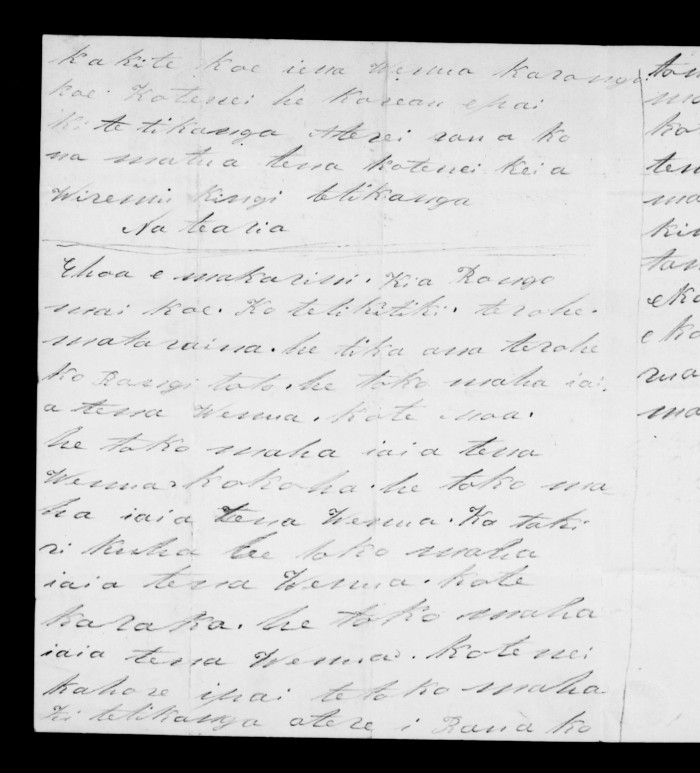 Kakite koe iena Wenua Karanga
koe. Kotenei he Korean epai
ki te tikanga Aterei raua ko
na matua tena kotenei keia
Wiremu Kingi tetikanga
Na tearia
Ehoa e makarini. Kia Rongo
mai koe. Ko tetikitiki. terohe.
mataraina. he tika ana terohe
ko Rangi toto. he toko maha iai
a tena Wenua. Kote moa.
he toko maha iaia tena
Wenua. kokoha. he toko ma
ha iaia tena Wenua. Ko taki
ri kuha he toko maha
iaia tena Wenua. kote
karaka. he toko maha
iaia tena Wenua. Kotenei
kahore ipai tetoko maha
ki tetikanga atere i Raua ko
tan
ma
ko
ten
ma
kin
tan
eko
e ko
rua
ma